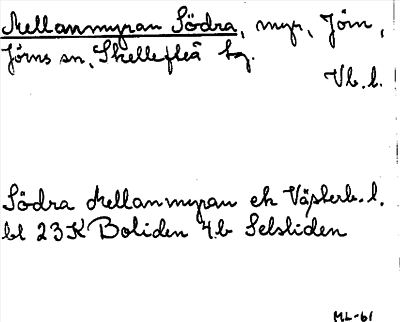 Mellanmyran Södra, myr, Jörn,
Jörns sn, Skellefteå tg.
Vb. l.
Södra Mellanmyran ek Västerb. l.
bl 23K Boliden 4b Selsliden
ML-61